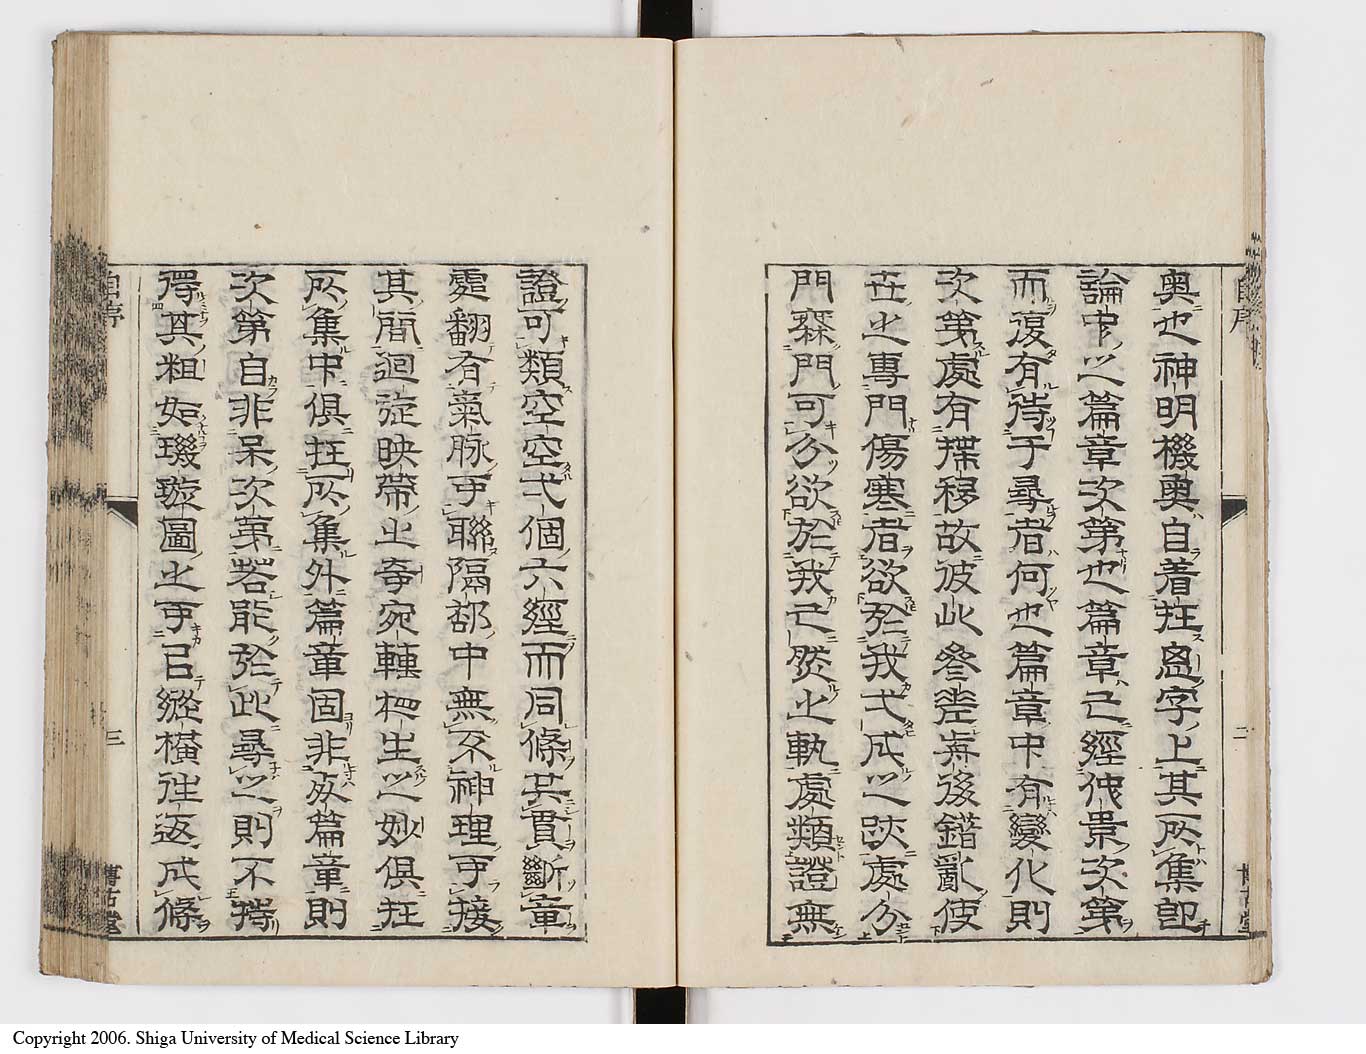 奥也神明機奥自着在窓字上其所集即
論中之篇章次第也篇章已經佚景次第
而復有待于尋者何也篇章中有變化則
次第處有揲移故彼此參差歬後錯亂使
世之專門傷寒者欲於我弌成之陝處分
門㨷門可分欲於我已然之軌處類證無
證可類空空弌個六經而同條共貫斷章
處翻有氣脉可聯隔部中無不神理可接
其間迴旋映帶之奇宛轉相生之妙俱在
所集中俱在所集外篇章固非成篇章則
次第自非呆次第若能於此尋之則不撈
得其粗如璣璇圖之可以縱橫往返成條
自序
二
博古堂
自序
三
博古堂
Copyright 2006. Shiga University of Medical Science Library